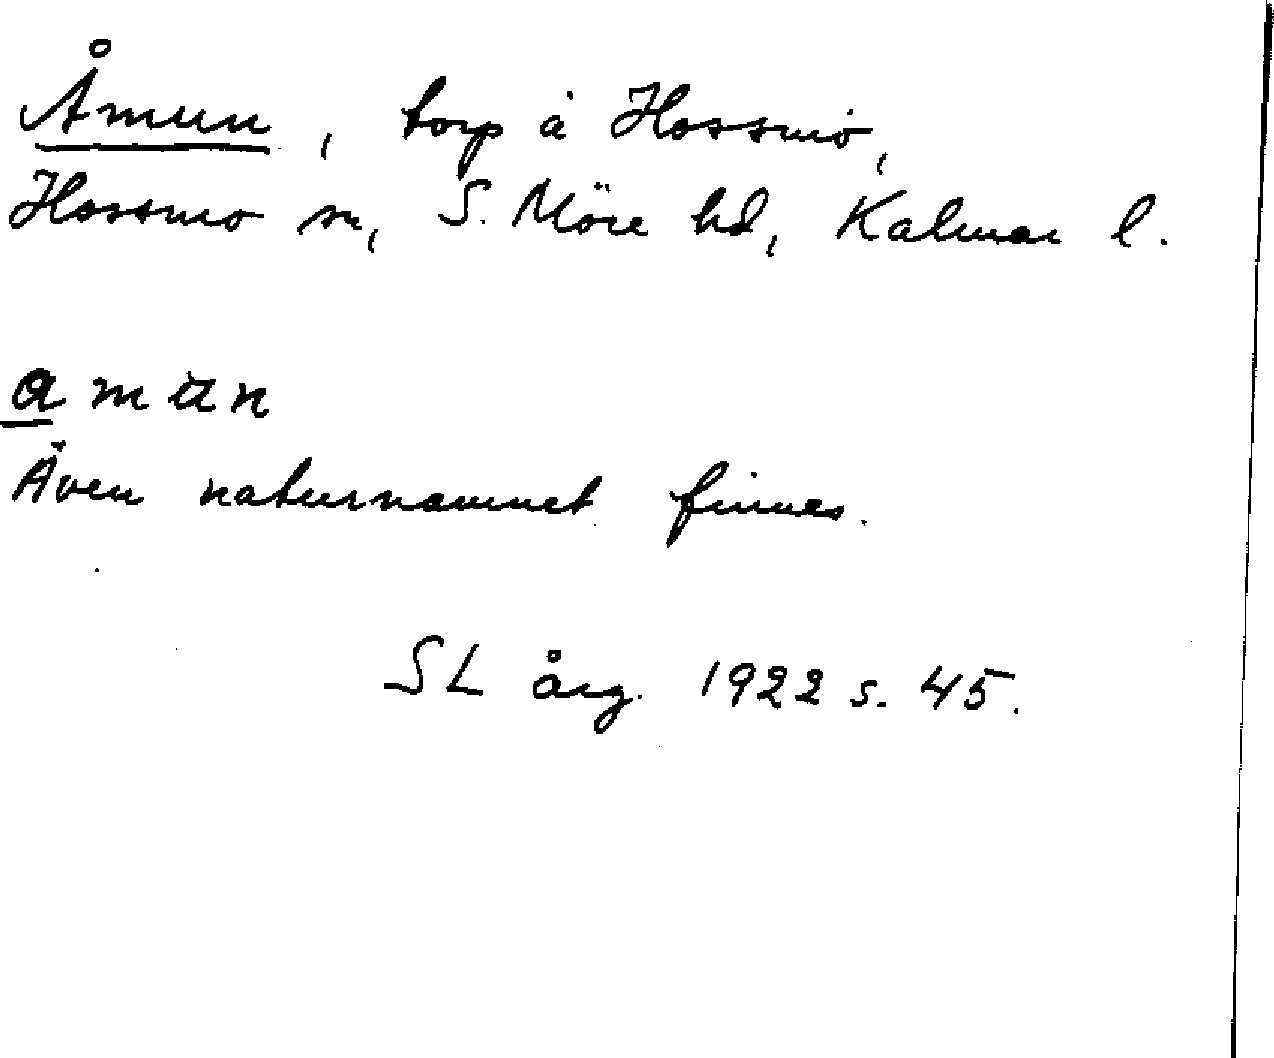 Åmun, torp å Hossmo,
Hossmo sn, S. Möre hd, Kalmar l.
amun
Även naturnamnet finnes.
SL årg. 1922 s. 45.